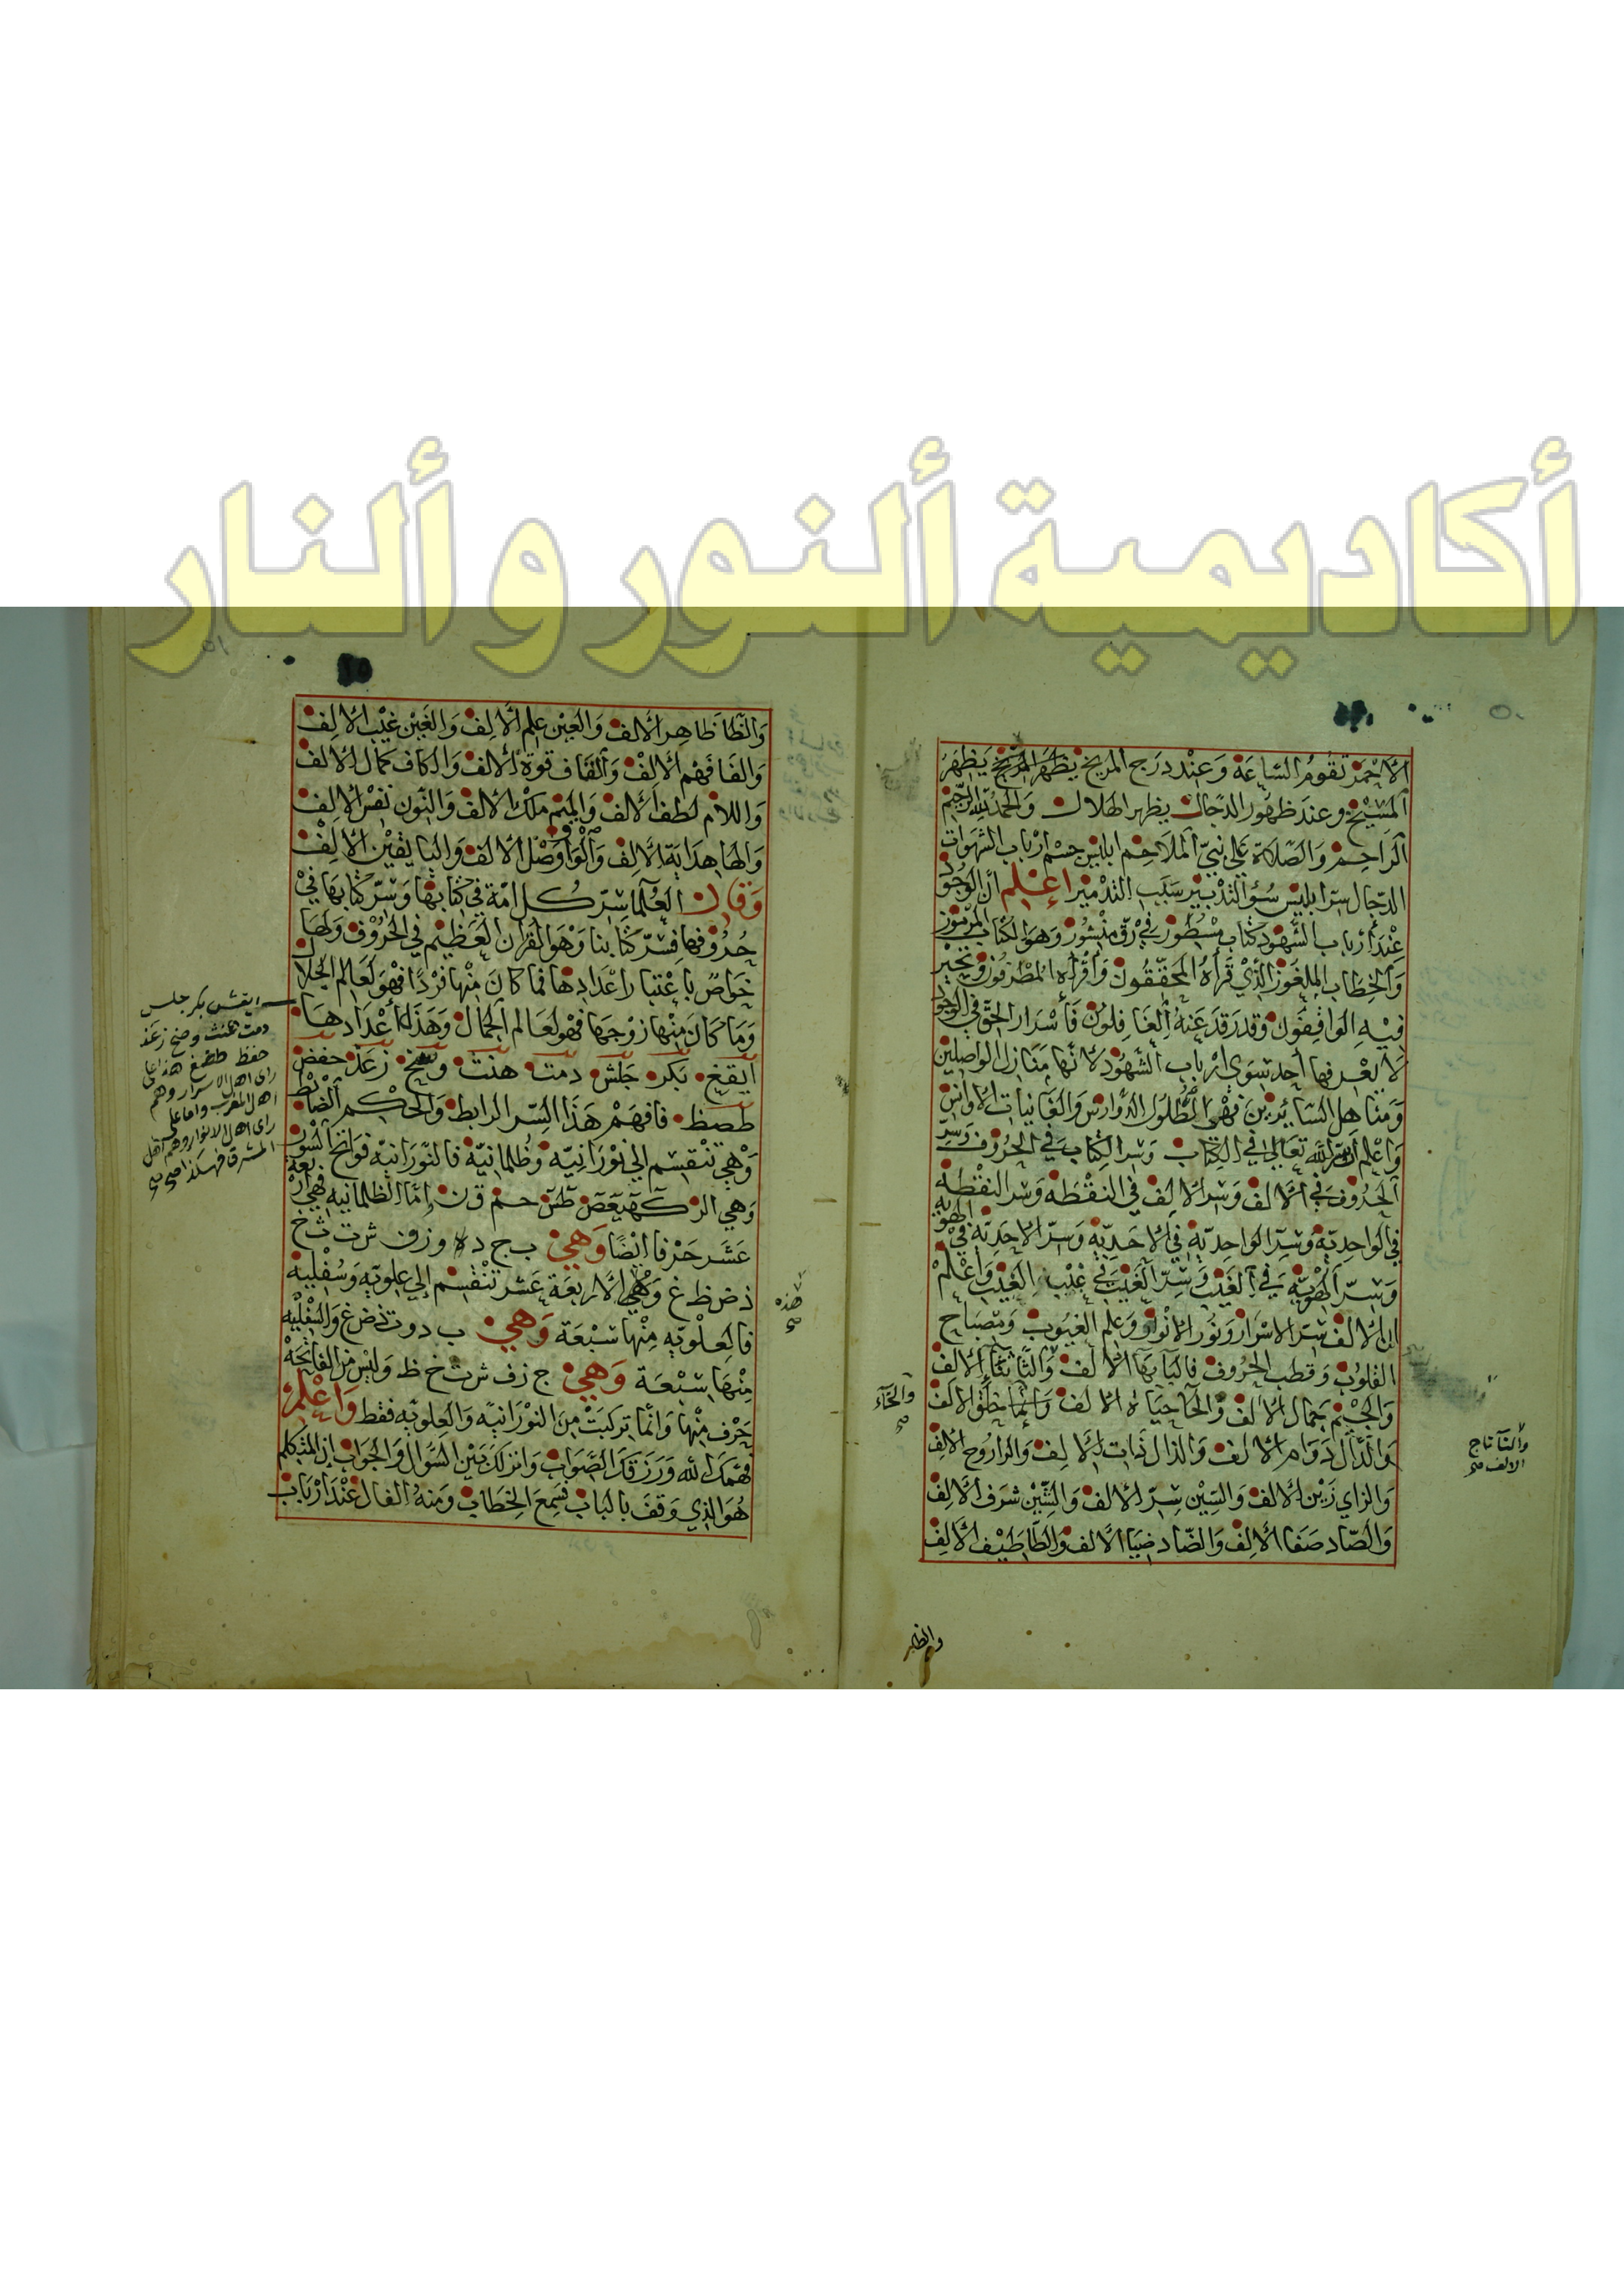 أكاديمية ألنور و ألنار
الاحمر تقوم الساعة وعند درج المريخ يظهر المريخ يظهر
المسيخ وعند ظهور الدجال يظهر الهلال والحمد لله الرحيم
الراحم والصلاة على نبي الملاحم ابليس جسم ارباب الشهوات
الدجال سر ابليس سؤ التدبير سبب التدمير اعلم ان الوجود
عند ارباب الشهود كتاب مسطور في رق منشور وهو الكتاب المرموز
والخطاب الملغوز الذي قرأه المحققون وأقرأه المطرقون وتحير
فيه الواقفون وقد رقد عنه الغافلون فأسرار الحق في الوجود
لا يعرفها أحد سوى ارباب الشهود لانها منازل الواصلين
ومناهل السائرين فهي الطلول الدوارس والغانيات الاوانس
واعلم أن سر الله تعالى في الكتاب وسر الكتاب في الحروف وسر
الحروف في الالف وسر الالف في النقطة وسر النقطة
في الواحدية وسر الواحدية في الاحدية وسر الاحدية في الهوية
وسر الهوية في الغيب وسر الغيب في غيب الغيب واعلم
ان الالف سر الاسرار ونور الانوار وعلم الغيوب ومصباح
القلوب وقطب الحروف فالبا بها الالف والثا ثنا الالف
والجيم جمال الالف والحا حياة الالف وانما خلق الالف
والدال دوام الالف والذال ثبات الالف والرا روح الالف
والزاي زين الالف والسين سر الالف والشين شرف الالف
والصاد صفا الالف والضاد ضيا الالف والطا طيف الالف
والخآء
صح
والتآ تاج
الالف صح
والظا
والظا ظاهر الالف والعين علم الالف والغين غيب الالف
والفا فهم الالف والقاف قوة الالف والكاف كمال الالف
واللام لطف الالف والميم ملك الالف والنون نفس الالف
والها هداية الالف والواو وصل الالف واليا يقين الالف
وقال العلما سر كل امة في كتابها وسر كتابها في
حروفها فسر كتابنا وهو القرآن العظيم في الحروف ولها
خواص باعتبار اعدادها فما كان منها فردا فهو لعالم الجلال
وما كان منها زوجها فهو لعالم الجمال وهذه أعدادها
ايقغ بكر جلش دمت هنث وسخ زعذ حفض
طصظ فافهم هذا السر الرابط والحكم الضابط
وهي تنقسم الي نورانيه وظلمانية فالنورانية فواتح السور
وهي الر كهيعص طس حم ق ن واما الظلمانيه فهي اربعة
عشر حرفا ايضا وهي ب ج د ه و ز ف ش ت ث خ
ذ ض ظ غ وهي الاربعة عشر تنقسم إلي علويه وسفلية
فالعلويه منها سبعة وهي ب د و ت ذ ض غ والسفليه
منها سبعة وهي ج ز ف ش ث خ ظ وليس في الفاتحة
حرف منها وانما تركبت من النورانيه والعلويه فقط واعلم
فهمك الله ورزقك الصواب وانزلك بين السؤال والجواب إن المتكلم
هو الذي وقف بالباب فسمع الخطاب ومنه الفال عند ارباب
ايقش بكر جلس
دمت هنث وصخ زعذ
حفظ طضغ هذا على
راى اهل الاسرار وهم
اهل المغرب واما على
راى اهل الانوار وهم اهل
المشرق فهكذا صح
هذه
صح